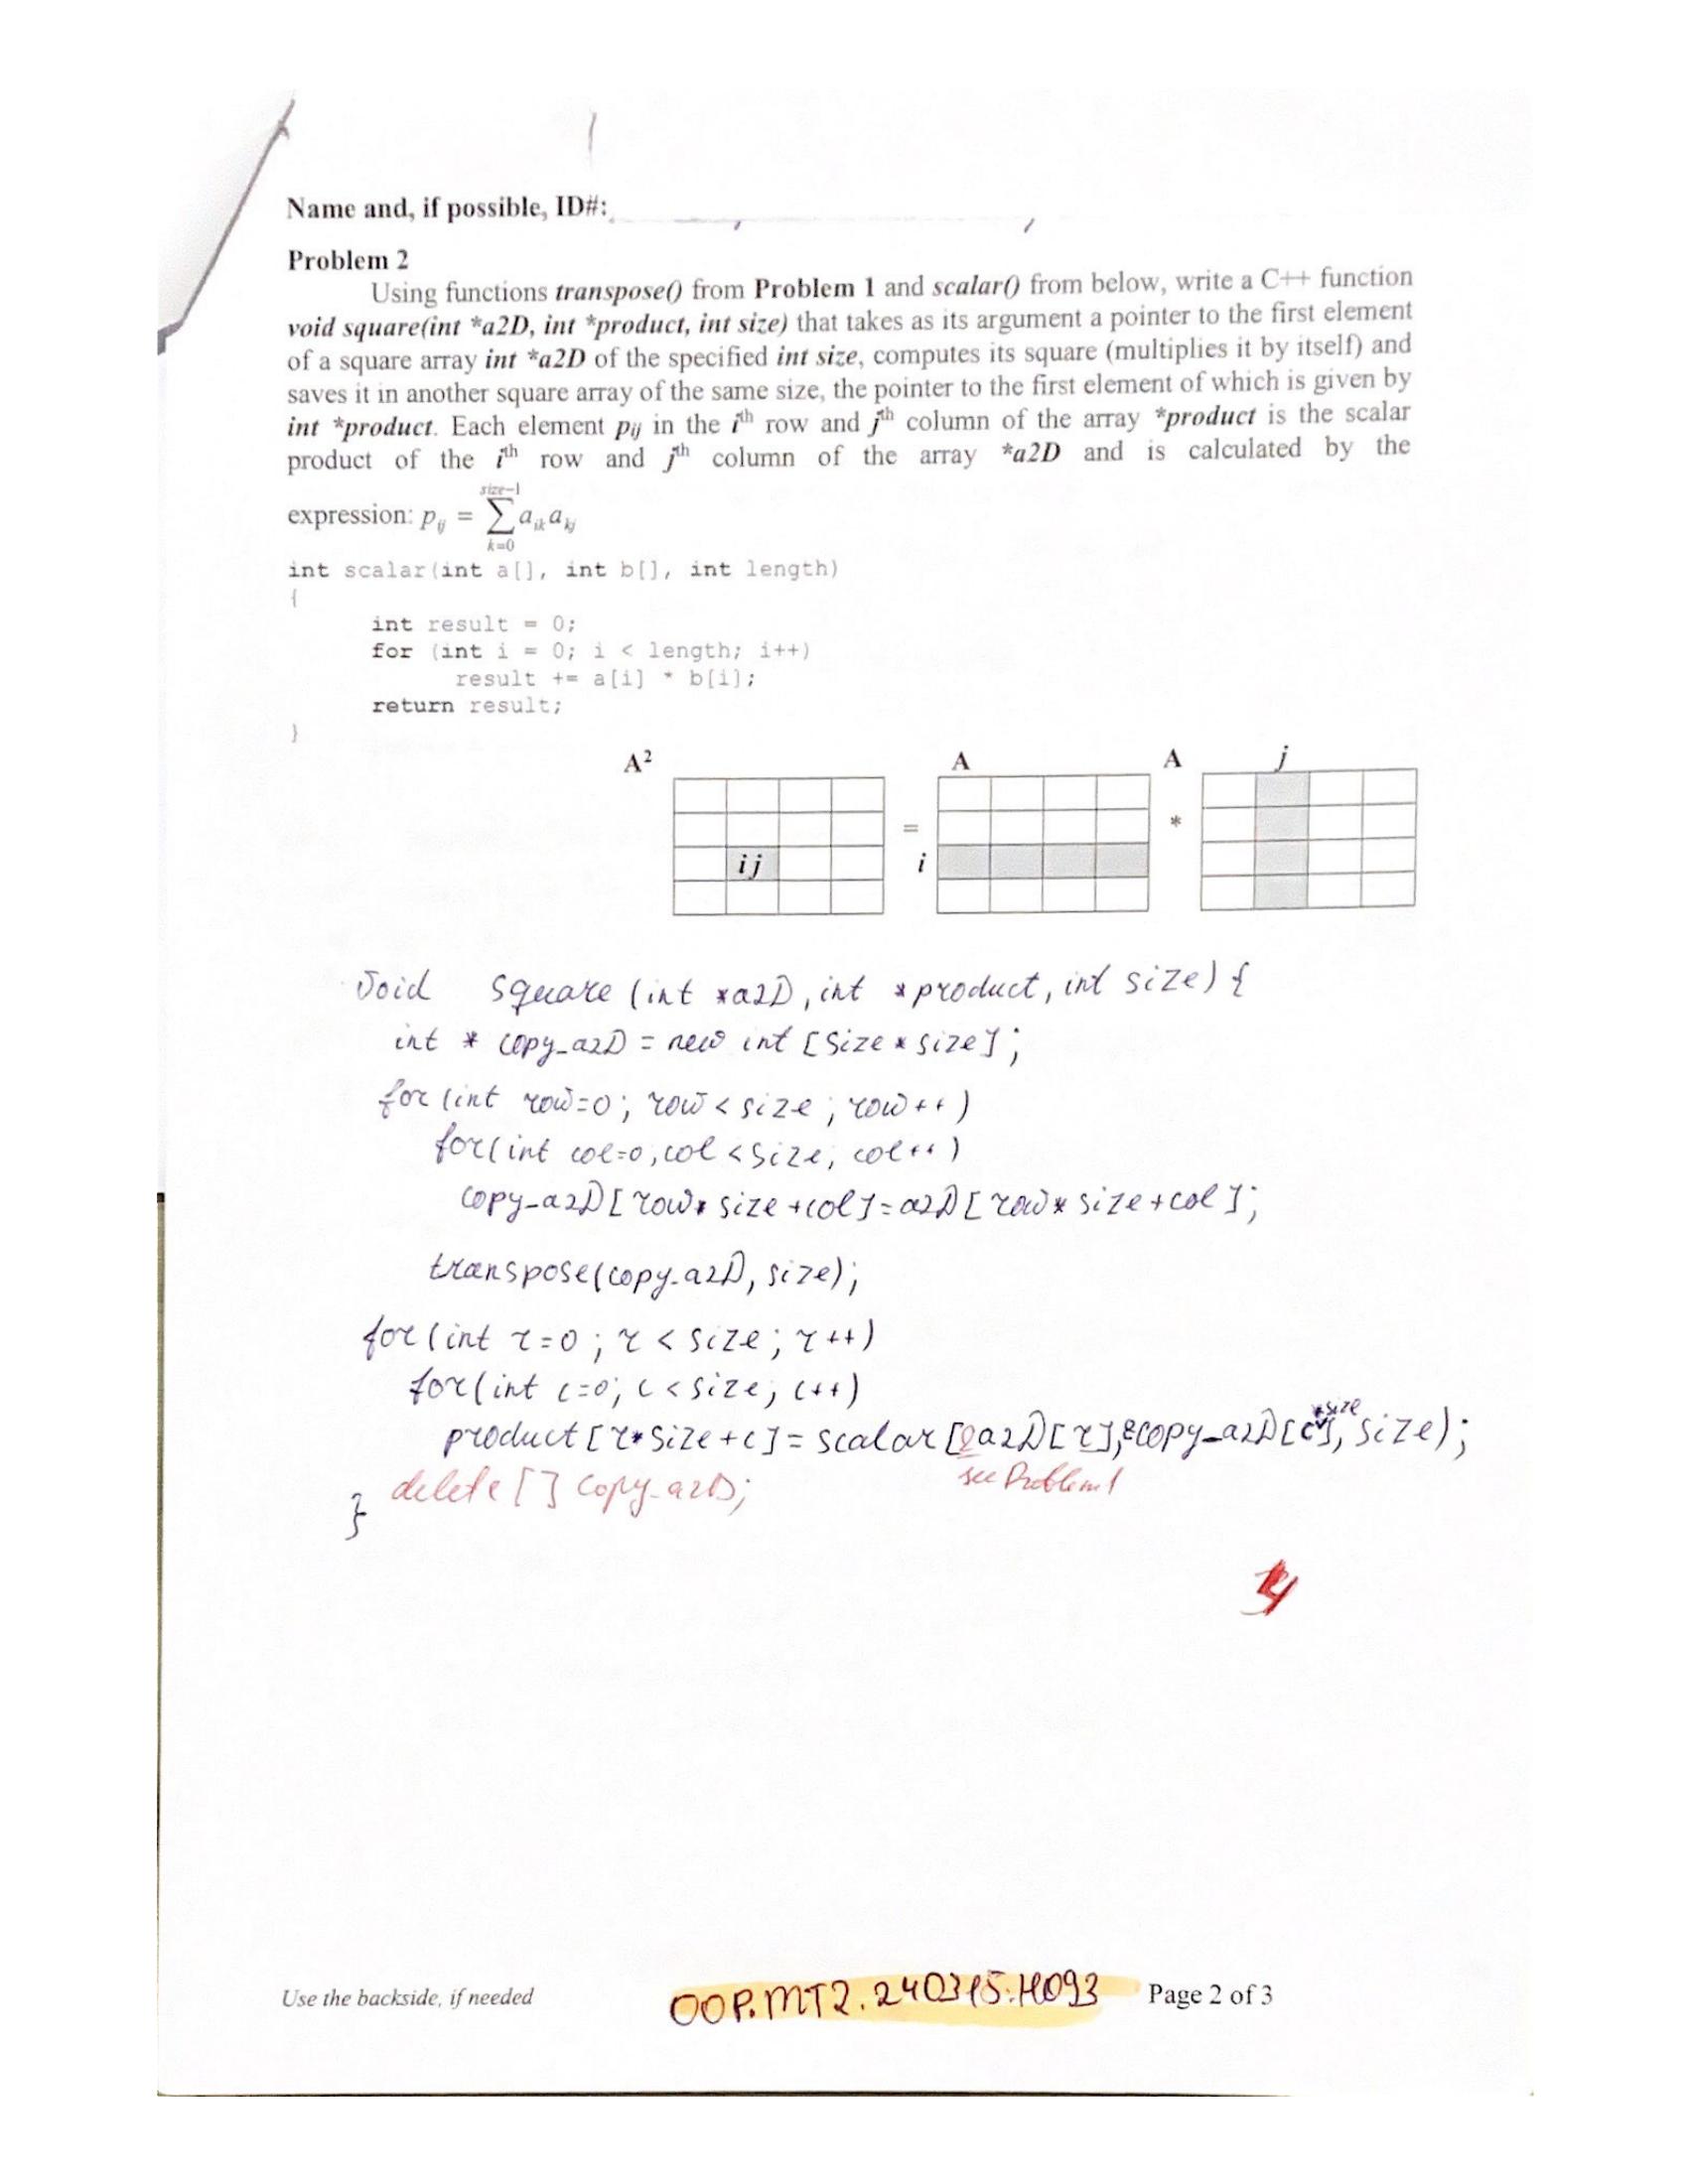 Name and, if possible, ID#:
Problem 2
Using functions transpose() from Problem 1 and scalar() from below, write a C++ function
void square(int *a2D, int *product, int size) that takes as its argument a pointer to the first element
of a square array int *a2D of the specified int size, computes its square (multiplies it by itself) and
saves it in another square array of the same size, the pointer to the first element of which is given by
int *product. Each element pij in the ith row and jth column of the array *product is the scalar
product of the ith row and jth column of the array *a2D and is calculated by the
expression: pij = size-1 ∑ k=0 aik akj
int scalar(int a[], int b[], int length)
{
int result = 0;
for (int i = 0; i < length; i++)
result += a[i] * b[i];
return result;
}
A² A A j
= *
ij i
void square (int *a2D, int *product, int size) {
int * copy_a2D = new int [size * size];
for (int row=0; row < size; row++)
for(int col=0, col < size; col++)
copy_a2D[row* size + col] = a2D[row* size + col];
transpose(copy_a2D, size);
for (int r=0; r < size; r++)
for(int c=0; c < size; c++)
product [r*size+c] = scalar [&a2D[r], &copy_a2D[c*size], size);
see Problem 1
delete [] copy_a2D;
}
Use the backside, if needed OOP.MT2.240315.H093 Page 2 of 3